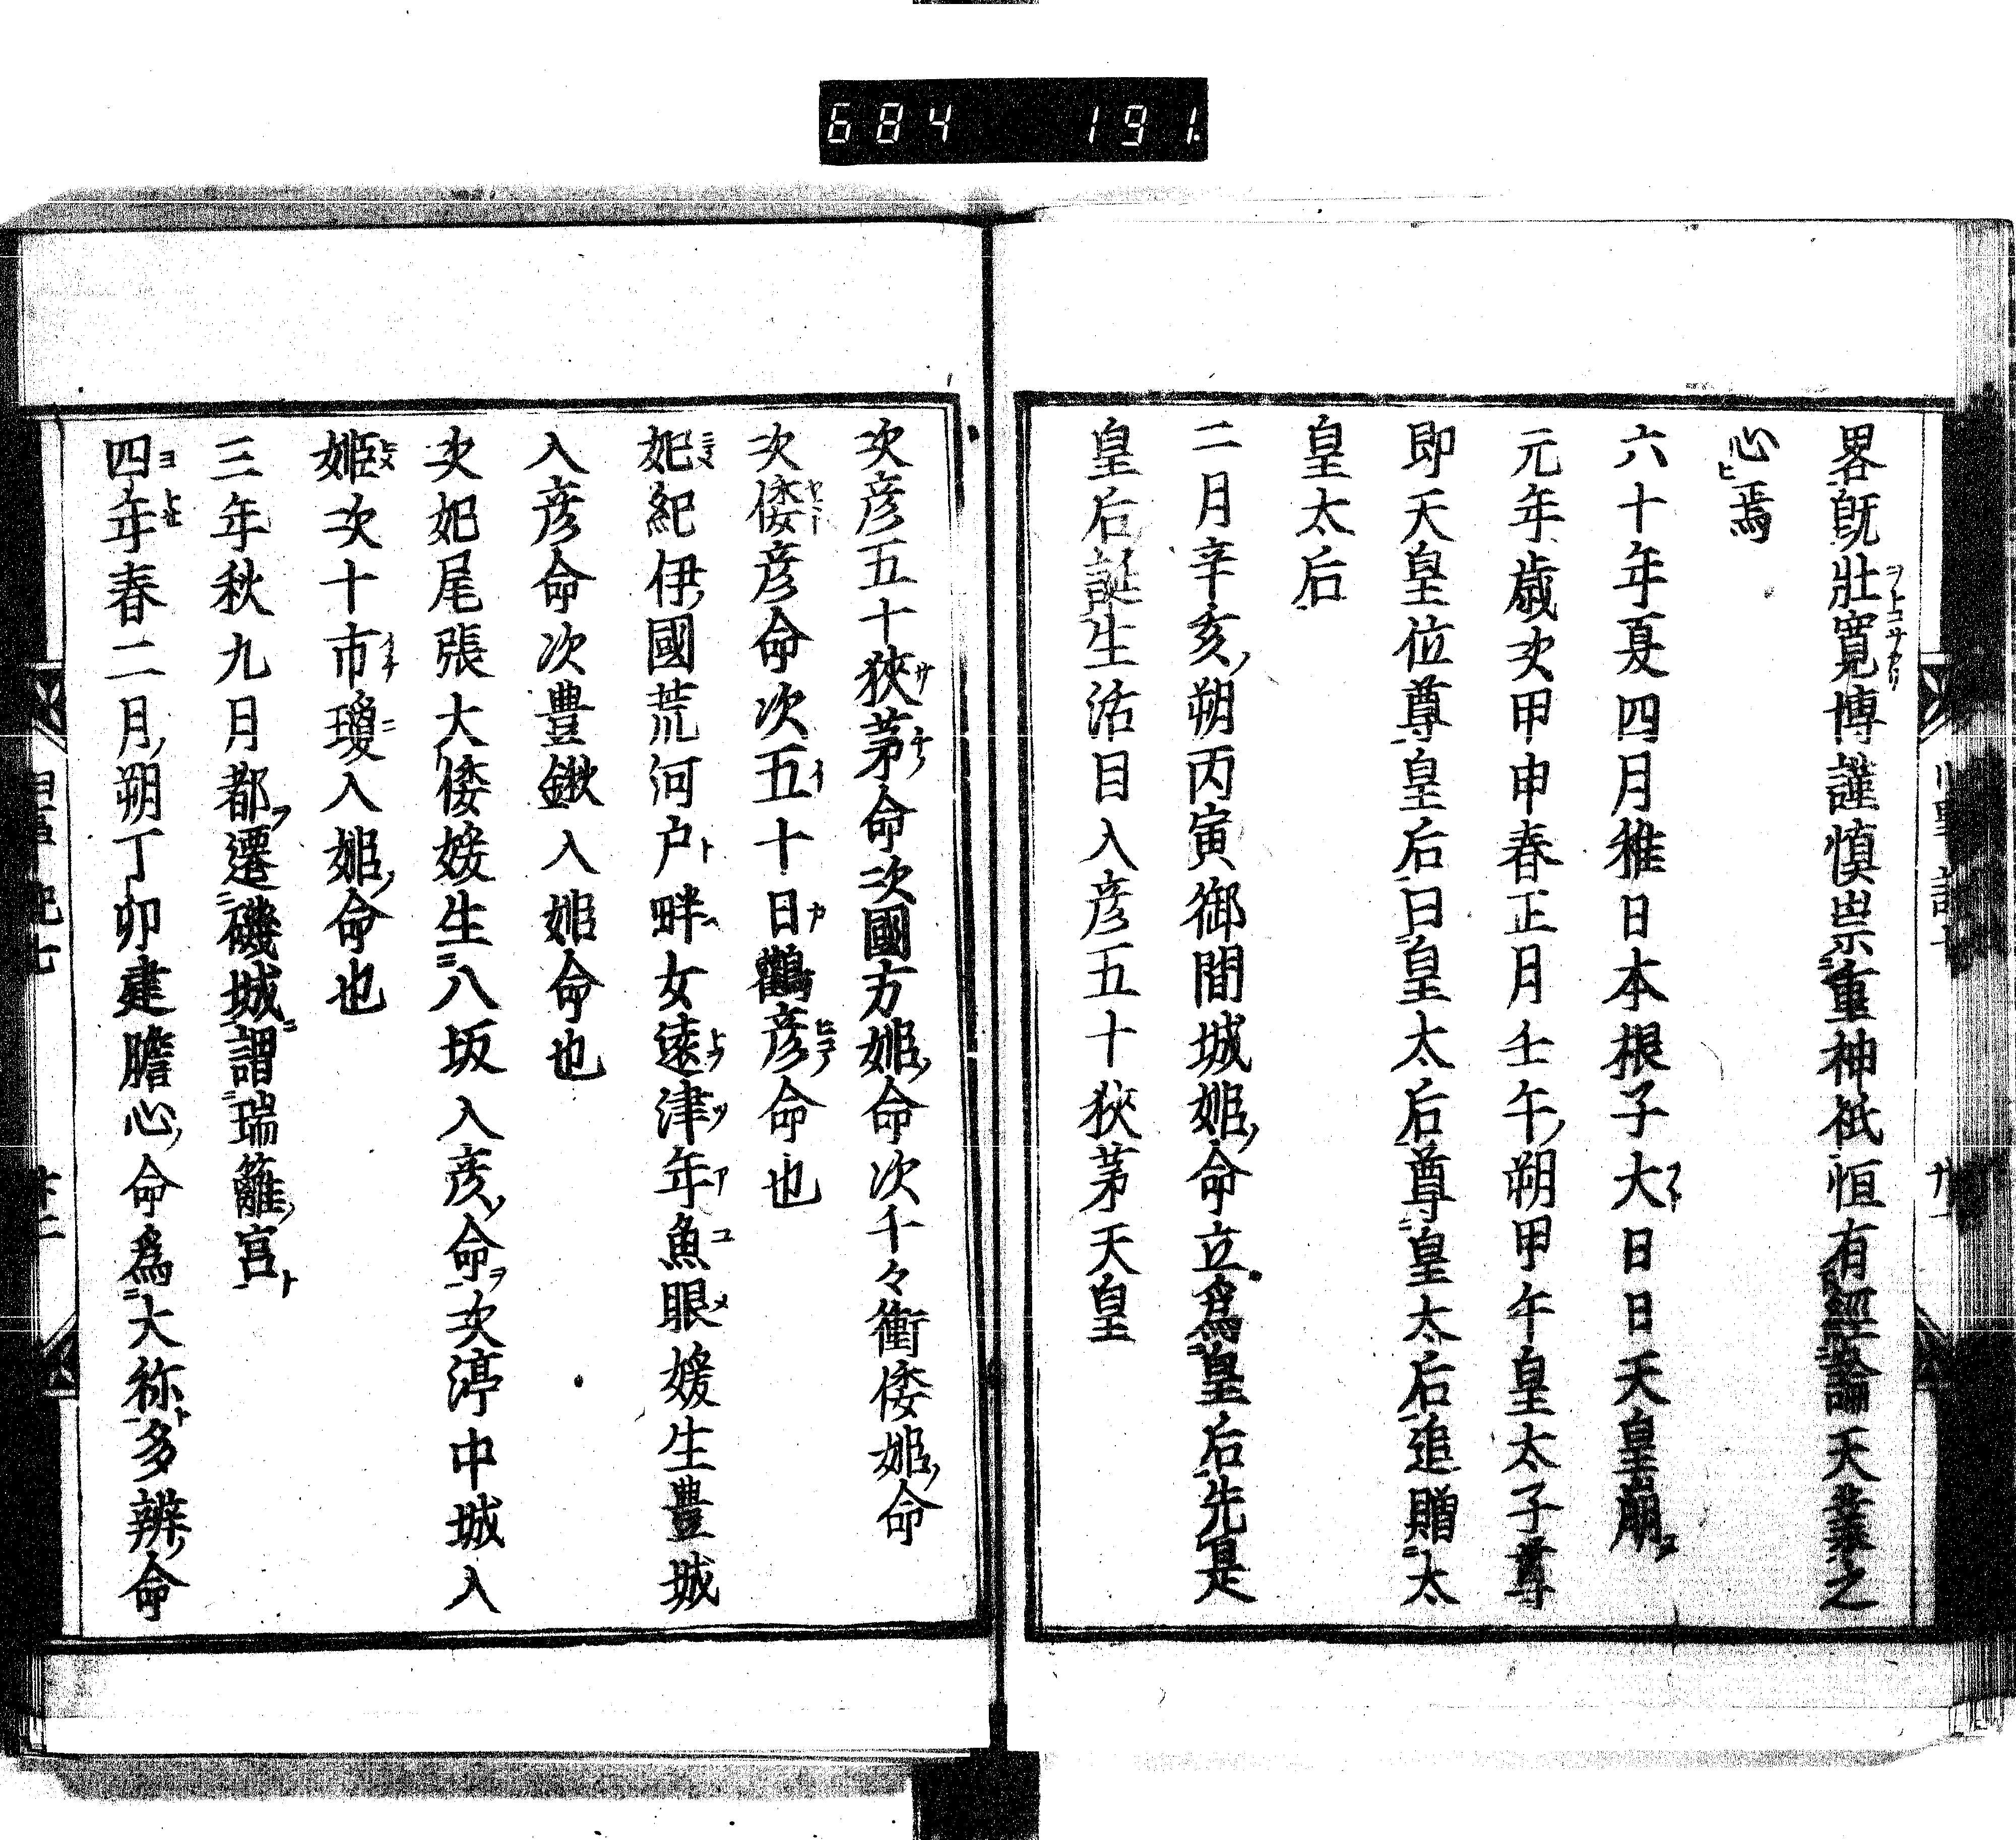 684 191.
畧既壯寛博謹慎崇重神祇恒有經論天業之
心焉
六十年夏四月稚日本根子大日日天皇崩
元年歳次甲申春正月壬午朔甲午皇太子尊
即天皇位尊皇后曰皇太后尊皇太后追贈太
皇太后
二月辛亥朔丙寅御間城姫命立爲皇后先是
皇后誕生活目入彦五十狹茅天皇
次彦五十狹茅命次國方姫命次千々衝倭姫命
次倭彦命次五十日鶴彦命也
妃紀伊國荒河户畔女遠津年魚眼媛生豊城
入彦命次豊鍬入姫命也
次妃尾張大倭媛生八坂入彦命次渟中城入
姫次十市瓊入姫命也
三年秋九月都遷磯城謂瑞籬宮
四年春二月朔丁卯建膽心命爲大祢多辨命